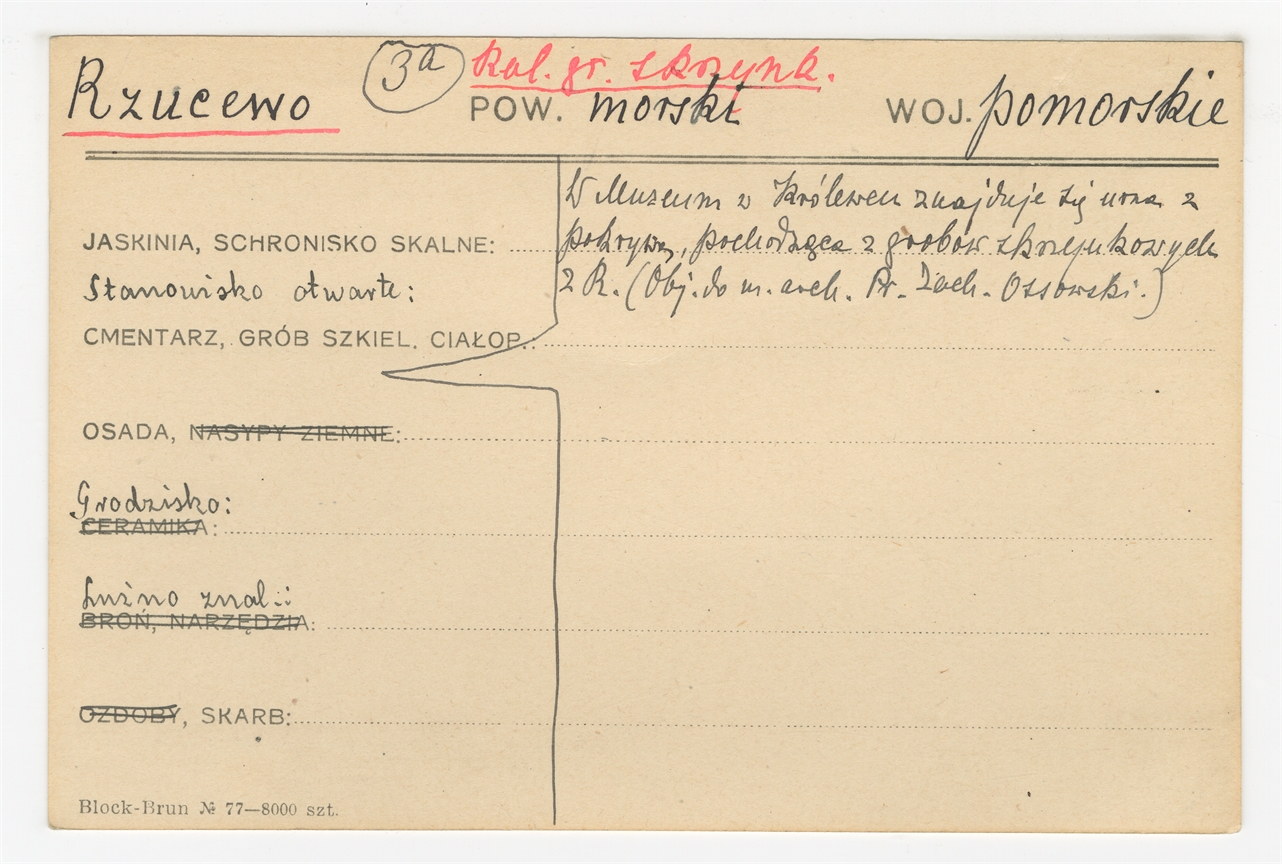 Rzucewo 3a kul. gr. skrzynk.
POW. morski WOJ. pomorskie
W Muzeum w Królewcu znajduje się urna z
JASKINIA, SCHRONISKO SKALNE: pokrywą, pochodząca z grobów skrzynkowych
Stanowisko otwarte: z R. (Obj. do m. arch. Pr. Zach. Ossowski.)
CMENTARZ, GRÓB SZKIEL. CIAŁOP.:
OSADA, NASYPY ZIEMNE:
Grodzisko:
CERAMIKA:
Luźno znal.:
BROŃ, NARZĘDZIA:
OZDOBY, SKARB:
Block-Brun № 77—8000 szt.